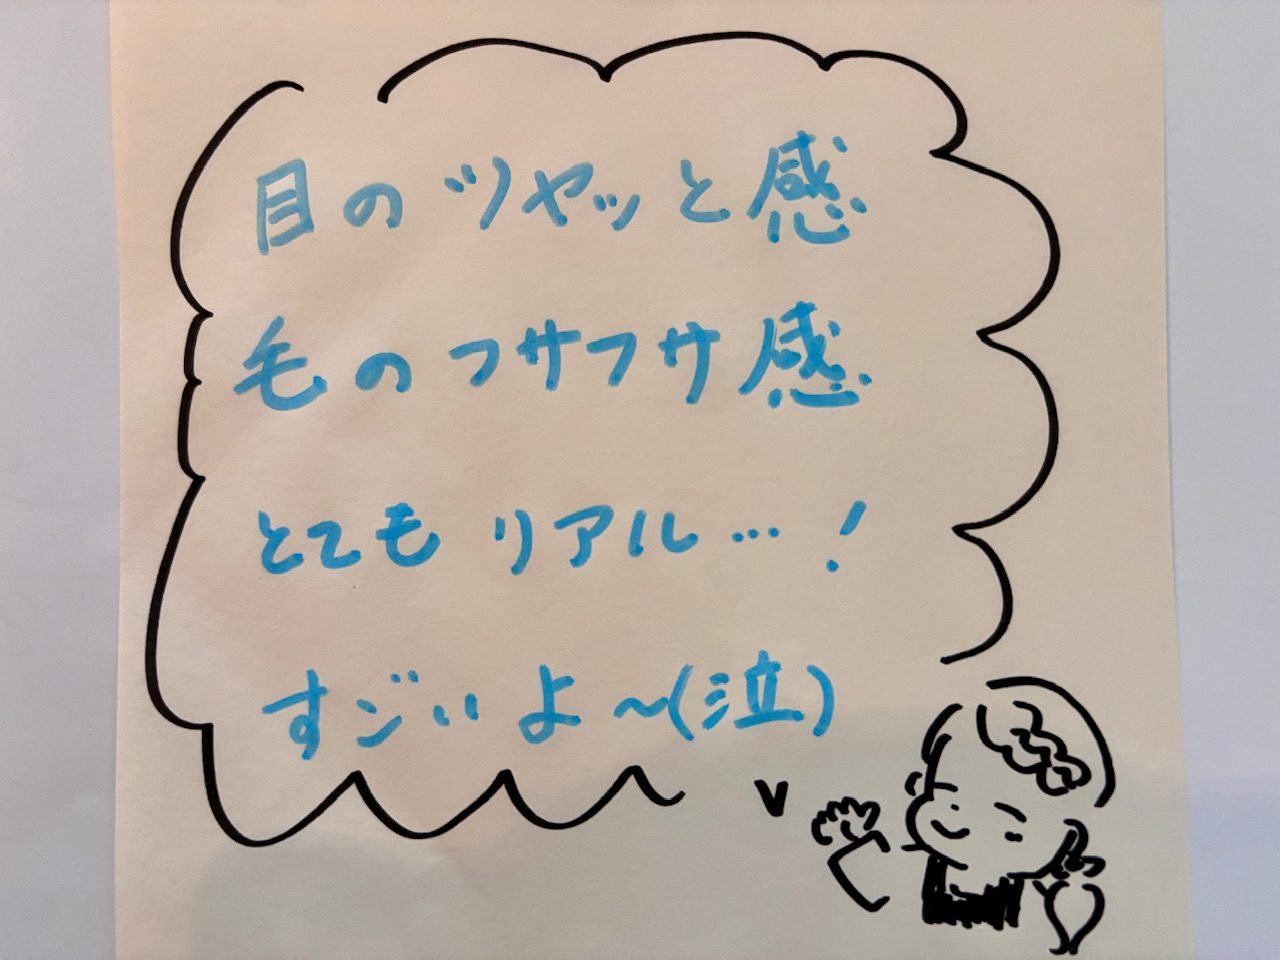 目のツヤッと感
毛のフサフサ感
とてもリアル…!
すごいよ〜(泣)